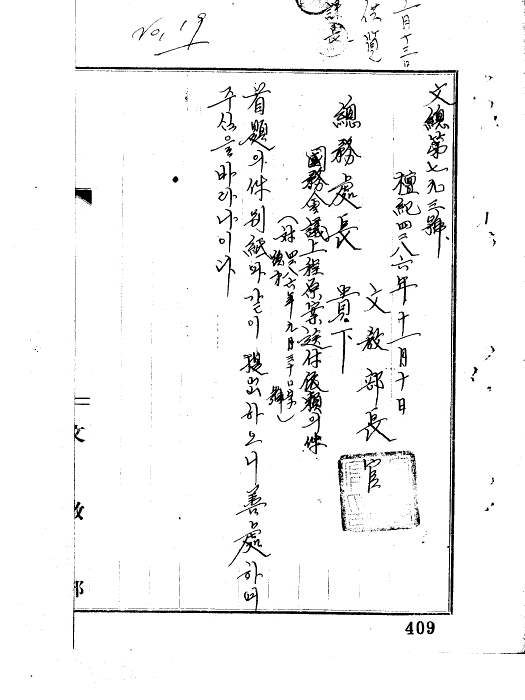 No, 19
十三日
供覽
課長
文總第七九三號
檀紀四二八六年十一月十日
文敎部長官
總務處長 貴下
國務會議上程原案送付依賴의件
首題의件別紙와같이 提出하오니 善處하여
주심을바라나이다
文敎部
409